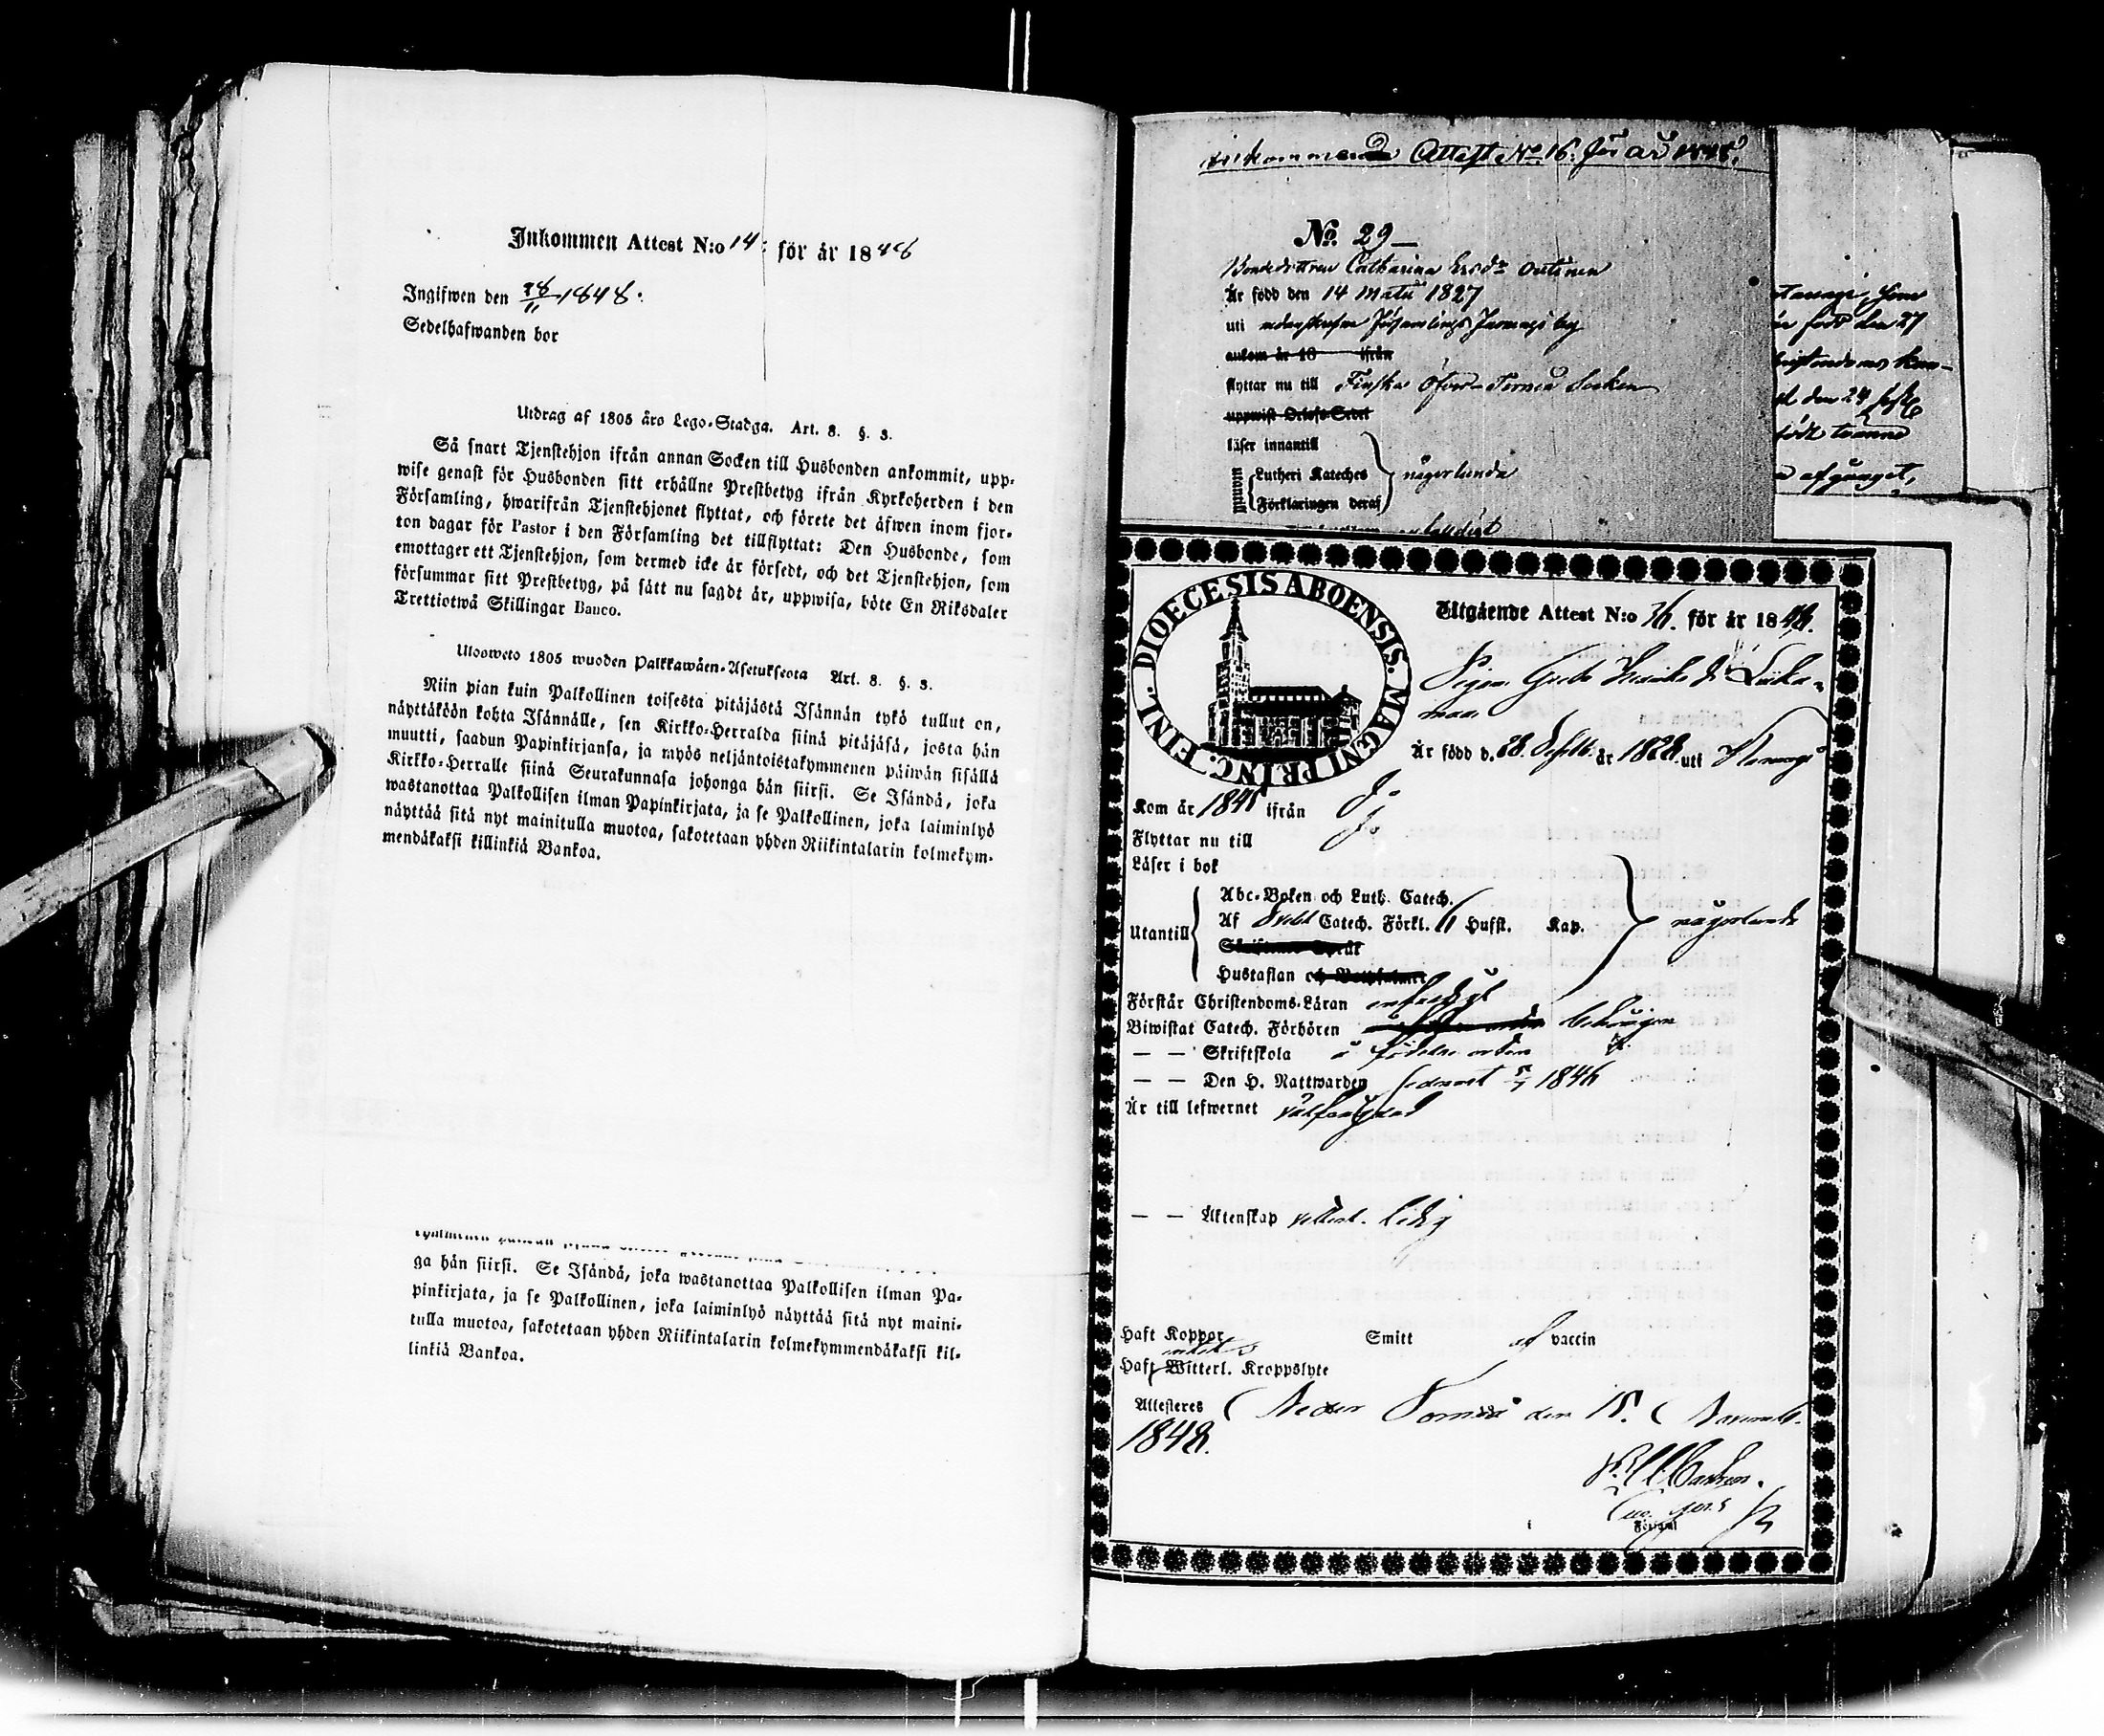 Inkommen Attest N:o 14: för år 1848
Ingifwen den 28/11 1848.
Sedelhafwanden bor
Utdrag af 1805 års Lego-Stadga. Art. 8. §. 3.
Så snart Tjenstehjon ifrån annan Socken till Husbonden ankommit, upp-
wise genast för Husbonden sitt erhållne Prestbetyg ifrån Kyrkoherden i den
Församling, hwarifrån Tjenstehjonet flyttat, och förete det äfwen inom fjor-
ton dagar för Pastor i den Församling det tillflyttat: Den Husbonde, som
emottager ett Tjenstehjon, som dermed icke är försedt, och det Tjenstehjon, som
försummar sitt Prestbetyg, på sätt nu sagdt är, uppwisa, böte En Riksdaler
Trettiotwå Skillingar Banco.
Ulosweto 1805 wuoden Palkkawäen-Asetuksesta Art. 8. §. 3.
Niin pian kuin Palkollinen toisesta pitäjästä Isännän tykö tullut on,
näyttäköön kohta Isännälle, sen Kirkko-Herralda siinä pitäjäsä, josta hän
muutti, saadun Papinkirjansa, ja myös neljäntoistakymmenen päiwän sisällä
Kirkko-Herralle siinä Seurakunnasa johonga hän siirsi. Se Isändä, joka
wastanottaa Palkollisen ilman Papinkirjata, ja se Palkollinen, joka laiminlyö
näyttää sitä nyt mainitulla muotoa, sakotetaan yhden Riikintalarin kolmekym-
mendäkaksi killinkiä Bankoa.
ga hän siirsi. Se Isändä, joka wastanottaa Palkollisen ilman Pa-
pinkirjata, ja se Palkollinen, joka laiminlyö näyttää sitä nyt maini-
tulla muotoa, sakotetaan yhden Riikintalarin kolmekymmendäkaksi kil-
linkiä Bankoa.
Inkommen Attest No 16. för år 1848.
No. 29
Bondedottren Catharina Ersdr Outinen
Är född den 14 Martii 1827
uti
ankom år 18 ifrån
flyttar nu till Finska Öfver Torneå Socken
uppwist Orlofs-Sedel
läser innantill
utantill Lutheri Kateches någorlunda
Förklaringen deraf
född den 27
den 24
tvänne
afgånget,
DIOECESIS ABOENSIS. MAGNI PRINC. FINL.
Utgående Attest N:o 36. för år 1848.
Pigan Greta
Är född d. 28. Septb. år 1828. uti
Kom år 1845 ifrån Ijo
Flyttar nu till Ijo
Läser i bok
Utantill
Abc-Boken och Luth. Catech.
Af Svebel Catech. Förkl. Hufst. Kap. någorlunda
Skriftenes Språk
Hustaflan och Botpsalmer
Förstår Christendoms-Läran enfaldigt
Biwistat Catech. Förhören behörigen
— — Skriftskola i födelse orten
— — Den H. Nattwarden sednast 1846
Är till lefwernet välfrägdad
— — Äktenskap veterl. ledig
Haft Koppor Smitt af vaccin
Haft Witterl. Kroppslyte
Attesteres Neder Torneå den 15. Novemb.
1848.
Församl